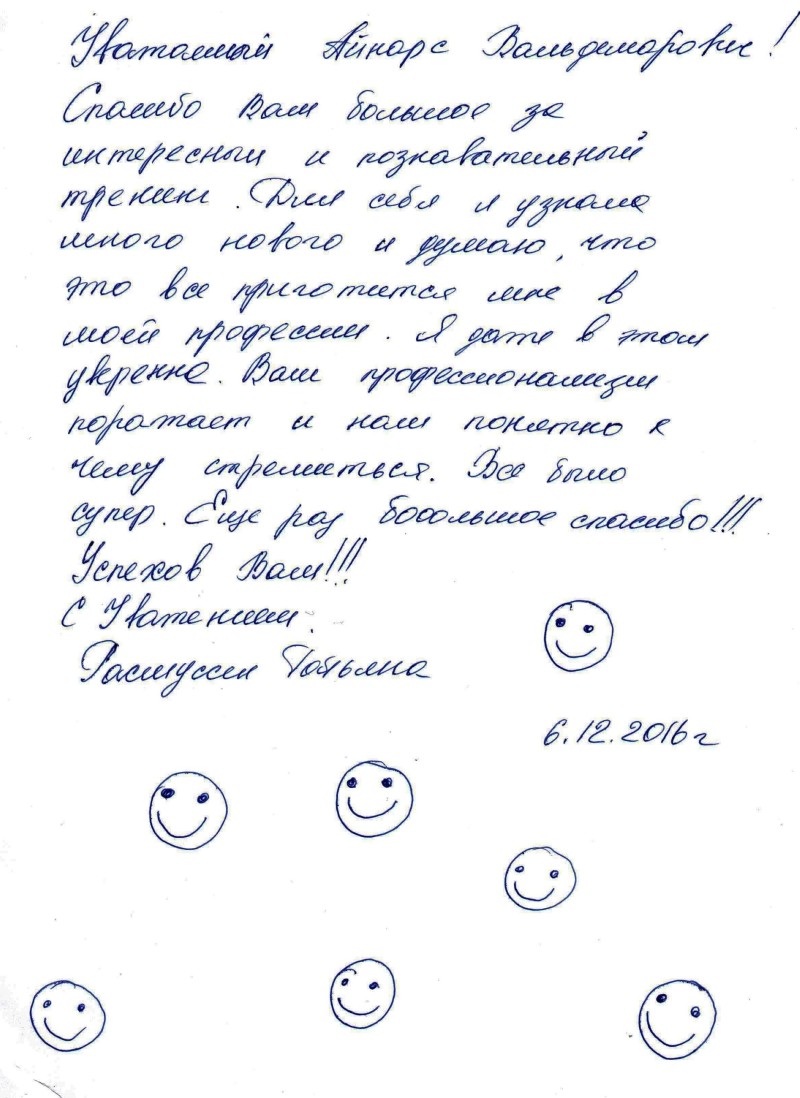 Уважаемый Айнарс Вальдемарович!
Спасибо Вам большое за
интересный и познавательный
тренинг. Для себя я узнала
много нового и думаю, что
это все пригодится мне в
моей профессии. Я даже в этом
уверенна. Ваш профессионализм
поражает и нам понятно к
чему стремиться. Все было
супер. Еще раз бооольшое спасибо!!!
Успехов Вам!!!
С Уважением.
Татьяна
6.12.2016г